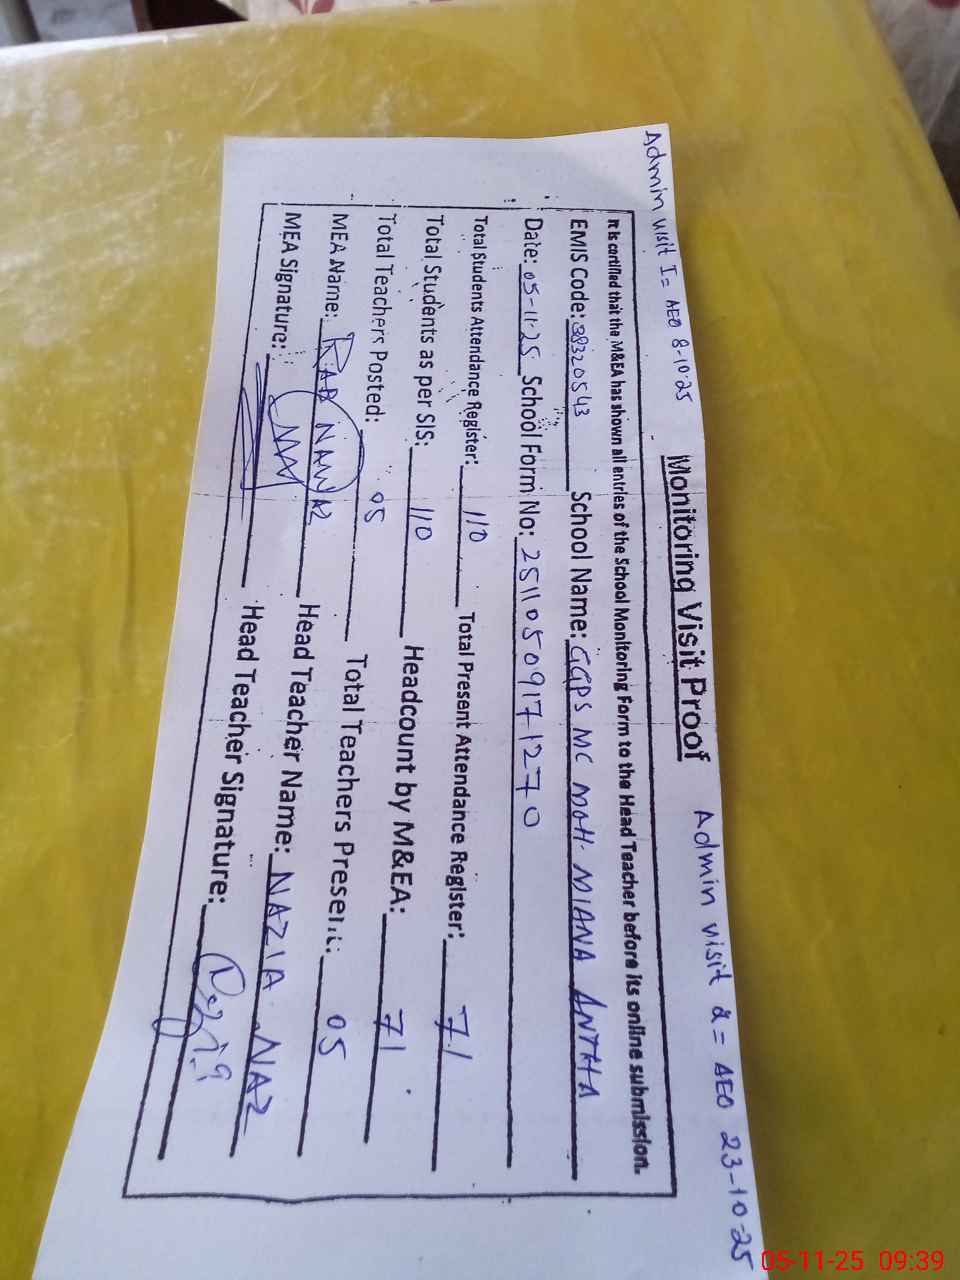 Admin visit I = AEO 8-10-25
Admin visit 2 = AEO 23-10-25
Monitoring Visit Proof
It is certified that the M&EA has shown all entries of the School Monitoring Form to the Head Teacher before its online submission.
EMIS Code: 38320543 School Name: GGPS MC MOH. MIANA ANTHA
Date: 05-11-25 School Form No: 25110509171270
Total Students Attendance Register: 110 Total Present Attendance Register: 71
Total Students as per SIS: 110 Headcount by M&EA: 71
Total Teachers Posted: 05 Total Teachers Present: 05
MEA Name: RAB NAWAZ Head Teacher Name: NAZIA NAZ
MEA Signature: Head Teacher Signature:
05-11-25 09:39